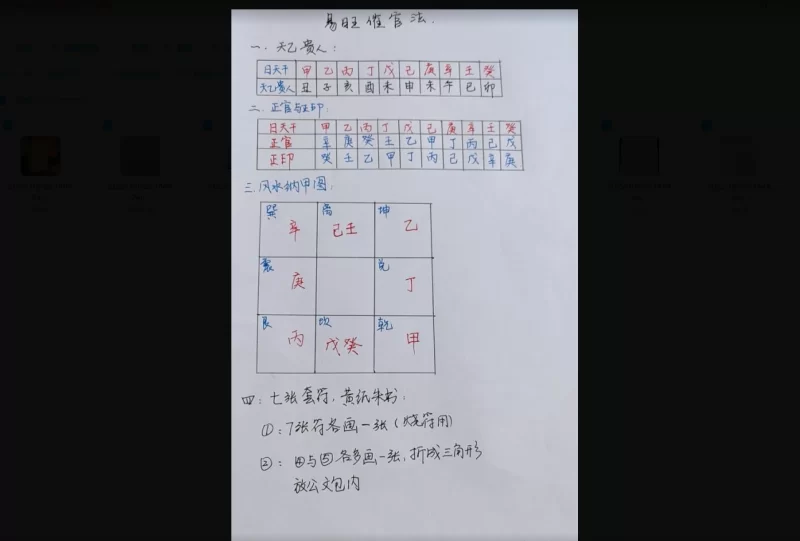 易旺催官法.
一. 天乙贵人:
日天干 甲 乙 丙 丁 戊 己 庚 辛 壬 癸
天乙贵人 丑 子 亥 酉 未 申 未 午 巳 卯
二. 正官与正印:
日天干 甲 乙 丙 丁 戊 己 庚 辛 壬 癸
正官 辛 庚 癸 壬 乙 甲 丁 丙 己 戊
正印 癸 壬 乙 甲 丁 丙 己 戊 辛 庚
三. 风水纳甲图:
巽 离 坤
辛 己壬 乙
震 兑
庚 丁
艮 坎 乾
丙 戊癸 甲
四: 七张套符, 黄纸朱书:
①: 7张符各画一张 (烧符用)
②: 四与五各多画一张, 折成三角形
放公文包内